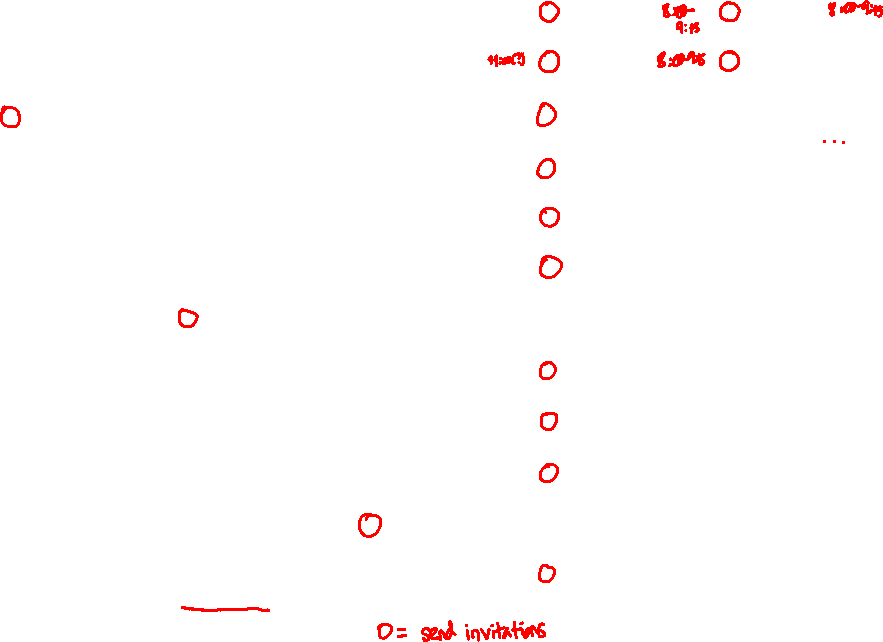 8:00-
9:15
8:00-9:15
11:00(?)
8:00-9:15
...
O = send invitations